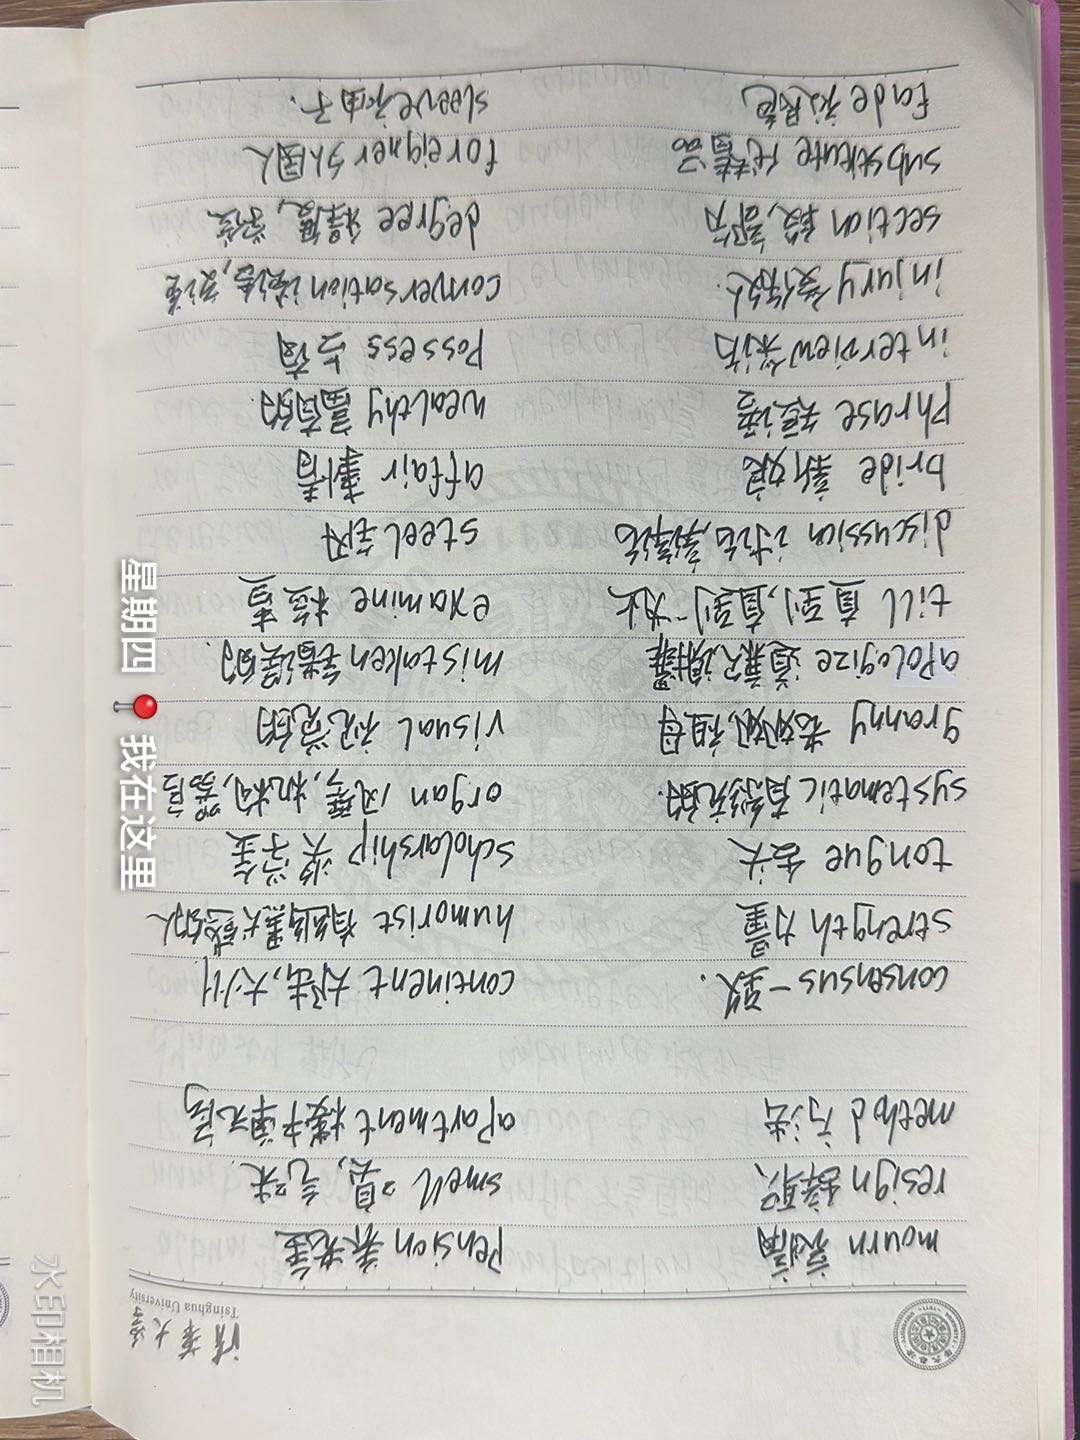 清华大学
Tsinghua University
mourn 哀悼 pension 养老金
resign 辞职 smell 臭,气味
method 方法 apartment 楼中单元房
consensus 一致. continent 大陆,大州
strength 力量 humorist 有幽默感的人
tongue 舌头 scholarship 奖学金
systematic 有系统的. organ 风琴,机构,器官
granny 老奶奶,祖母 visual 视觉的
apologize 道歉,谢罪 mistaken 错误的.
till 直到,直到…为止 examine 检查
discussion 讨论,辩论 steel 钢
bride 新娘 affair 事情
phrase 短语 wealthy 富有的.
interview 采访 possess 占有
injury 受伤人. conversation 谈话,交谈
section 段,部分 degree 程度,学位
substitute 代替品 foreigner 外国人
fade 褪色 sleeve 袖子.
星期四 📍 我在这里
水印相机